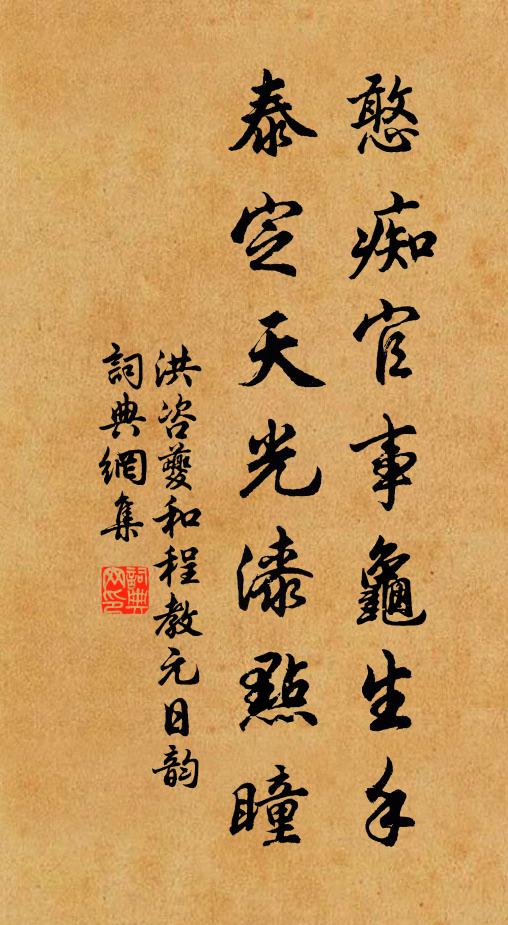 憨痴官事龜生手
泰定天光漆點瞳
洪咨夔和程教元日韵
詞典網集
詞典网印